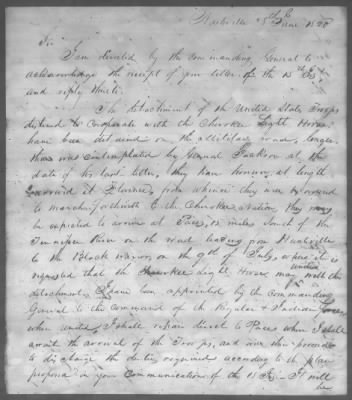 Nashville 5th June 1820
Sir
I am directed by the commanding General to
acknowledge the receipt of your letter of the 15
and reply thereto.
The detachment of the United States Troops
destined to cooperate with the Cherokee Light Horse
have been detained on the Military road, longer
than was contemplated by General Jackson at the
date of his last letter, they have however at length
arrived at Florence, from whence they are
to march forthwith to the Cherokee nation, they may
be expected to arrive at 12 miles South of the
Tennessee River on the road leading from Huntsville
to the Black warrior, on the 9th of July, where it is
requested that the Cherokee Light Horse may with the
detachment, I have been appointed by the Commanding
General to the command of the Regular & Indian forces
when united, I shall repair direct to where I shall
await the arrival of the Troops, and will then proceed
to discharge the duties required according to the plan
proposed in your communication of the 15 It will
be